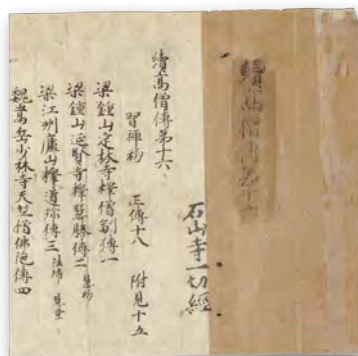 續高僧傳第十六
石山寺一切經
續高僧傳第十六
習禪初 正傳十八 附見十五
梁鍾山定林寺釋僧副傳一
梁鍾山延賢寺釋慧勝傳二 慧初
梁江州廬山釋道珍傳三 法歸 慧景
魏嵩岳少林寺天竺僧佛陀傳四